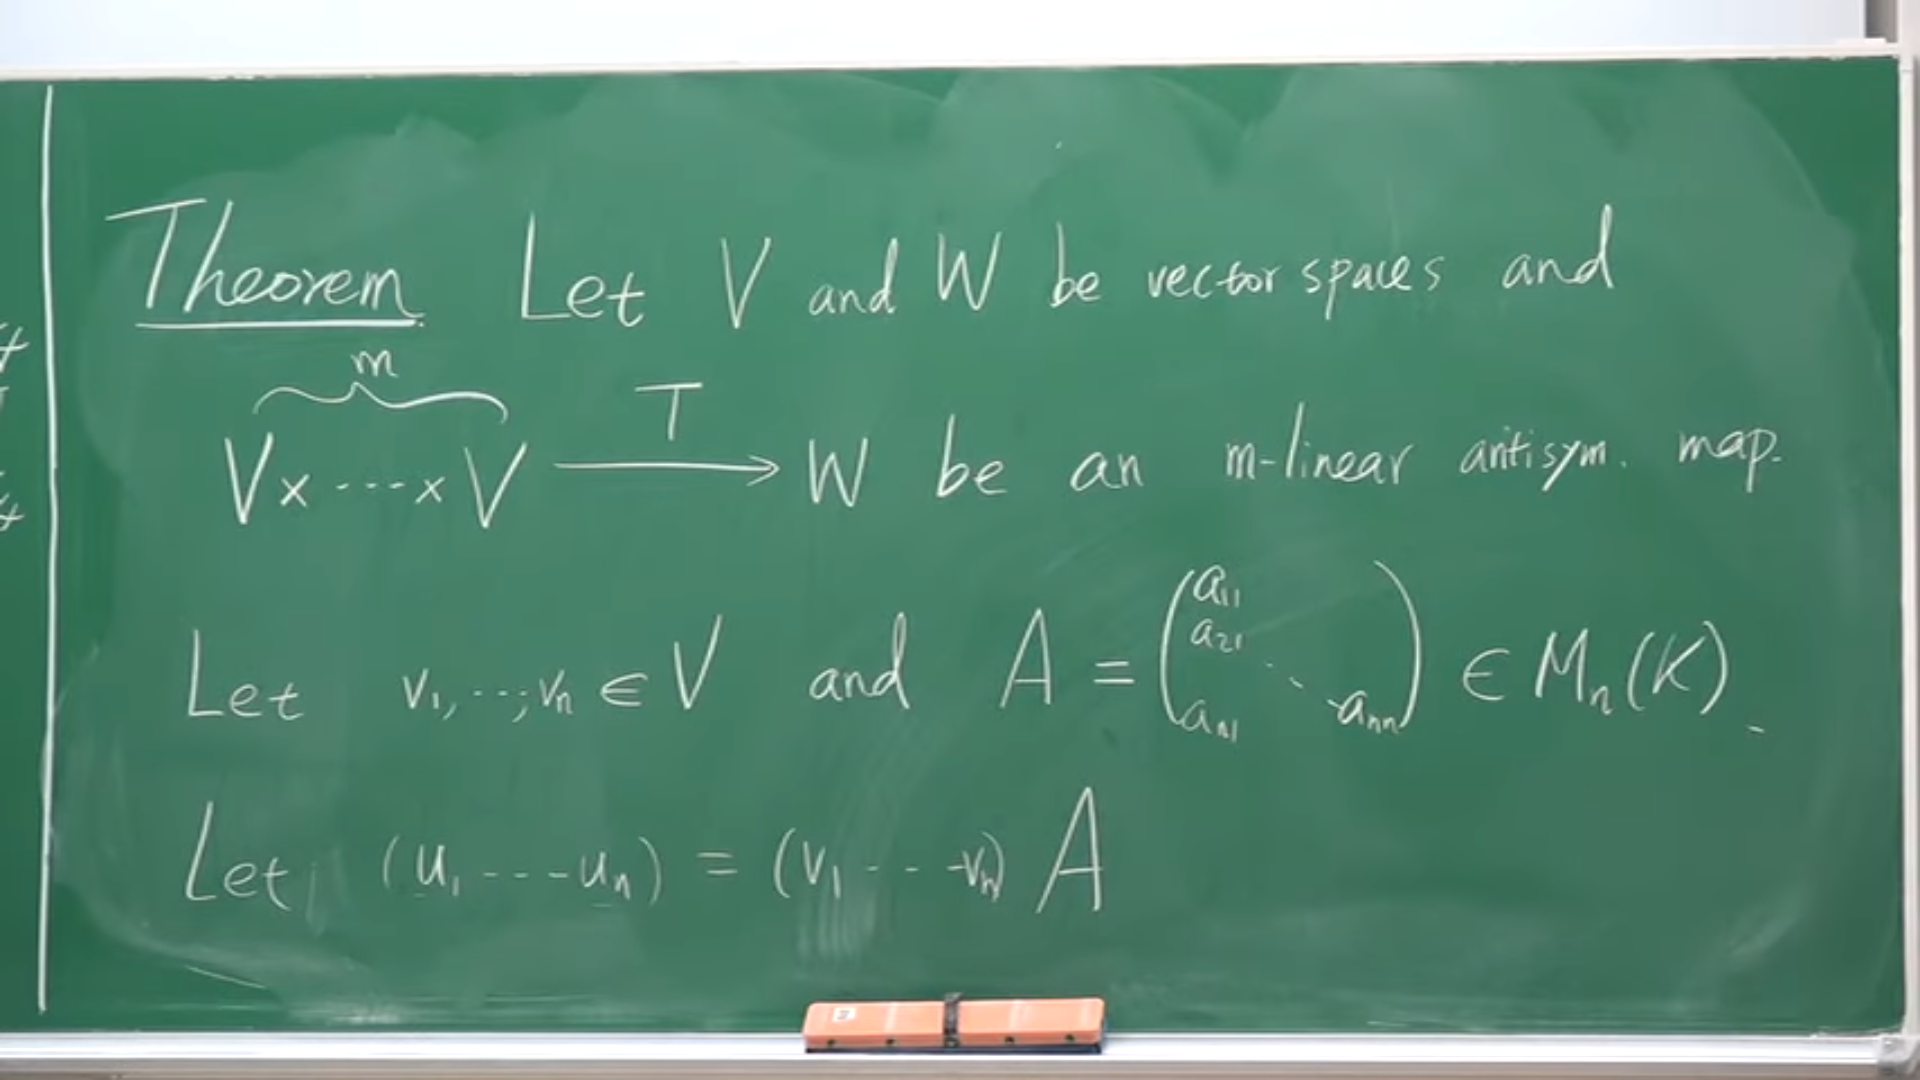 Theorem. Let V and W be vector spaces and
m
V × ---- × V —T→ W be an m-linear antisym. map.
Let v₁, ..., vₙ ∈ V and A = (a₁₁ a₂₁ aₙ₁ ⋱ aₙₙ) ∈ Mₙ(K).
Let (u₁ ---- uₙ) = (v₁ --- vₙ) A